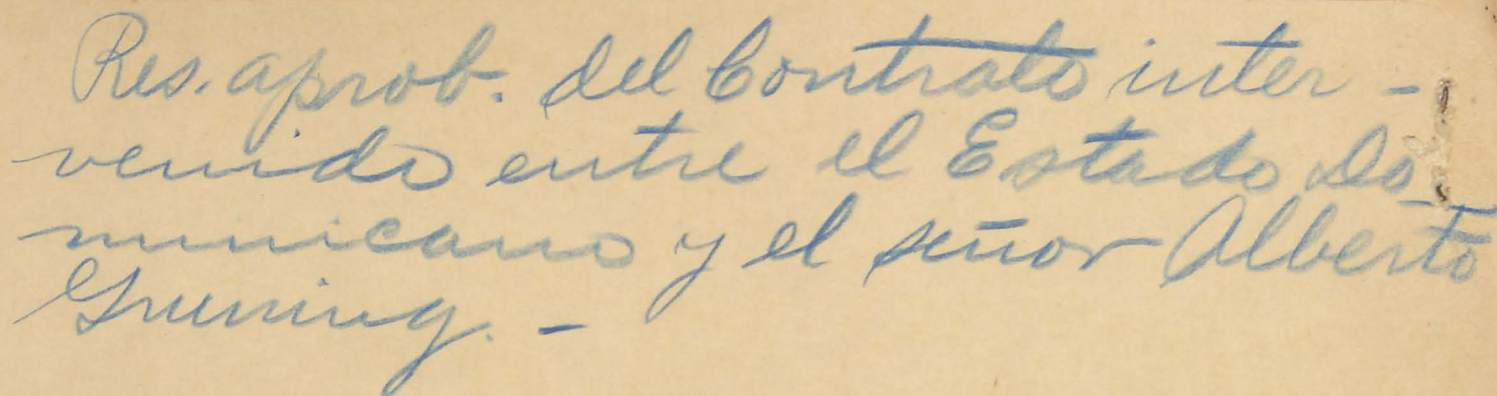 Res. aprob. del Contrato inter-
venido entre el Estado Do_
minicano y el señor Alberto
Gruning. -